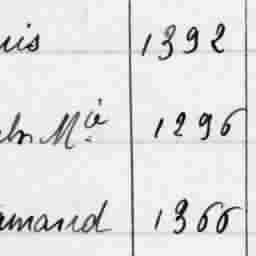 uis 1392
Mie 1296
amand 1366